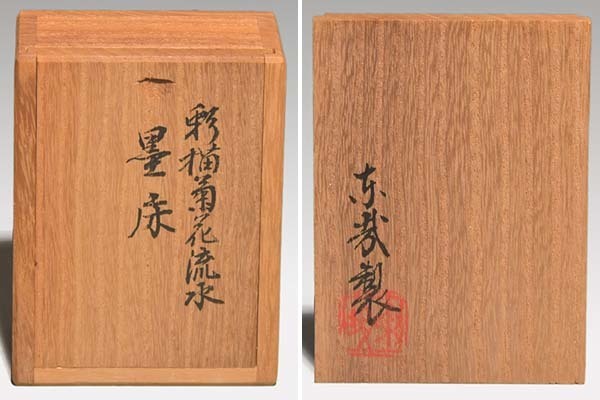 彩描菊花流水
一 墨床
东哉製